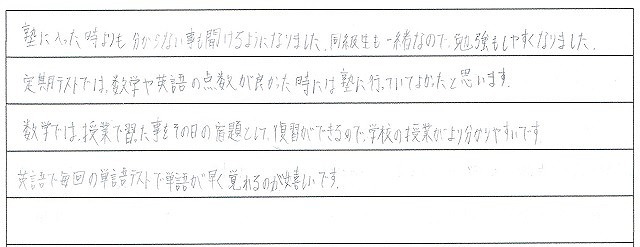 塾に入った時よりも分からない事も聞けるようになりました。同級生も一緒なので、勉強もしやすくなりました。
定期テストでは、数学や英語の点数が良かった時には塾に行っていてよかったと思います。
数学では、授業で習った事をその日の宿題として、復習ができるので、学校の授業がより分かりやすいです
英語で毎回の単語テストで単語が早く覚れるのが嬉しいです。